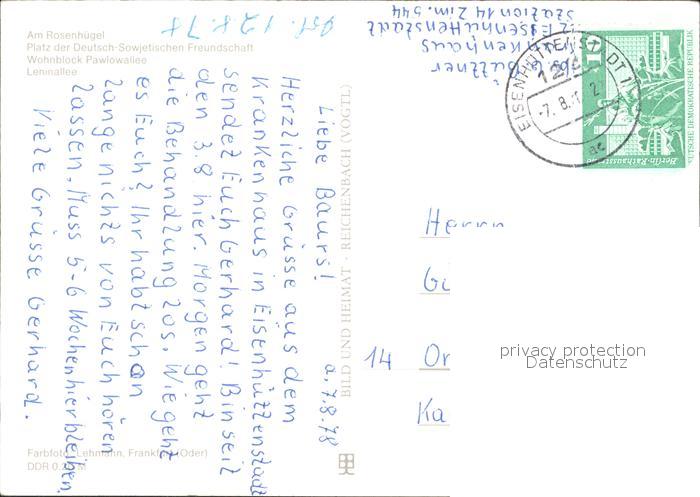 Am Rosenhügel
Platz der Deutsch-Sowjetischen Freundschaft
Wohnblock Pawlowallee
Leninallee
Liebe Baurs!
a. 7.8.78
Herzliche Grüsse aus dem
Krankenhaus in Eisenhüttenstadt
sendet Euch Gerhard! Bin seit
den 3.8 hier. Morgen geht
die Behandlung los. Wie geht
es Euch? Ihr habt schon
lange nichts von Euch hören
lassen. Muss 5-6 Wochen hierbleiben.
Viele Grüsse Gerhard.
Farbfoto: Lehmann, Frankfurt (Oder)
DDR 0.20 M
BILD UND HEIMAT · REICHENBACH (VOGTL)
Büttner
Krankenhaus
Eisenhüttenstadt
Station 14 Zim. 544
EISENHÜTTENSTADT
-7. 8.
10
Berlin-Rathausstraße
DEUTSCHE DEMOKRATISCHE REPUBLIK
Herrn
Gi
14 Or
Ka
privacy protection
Datenschutz